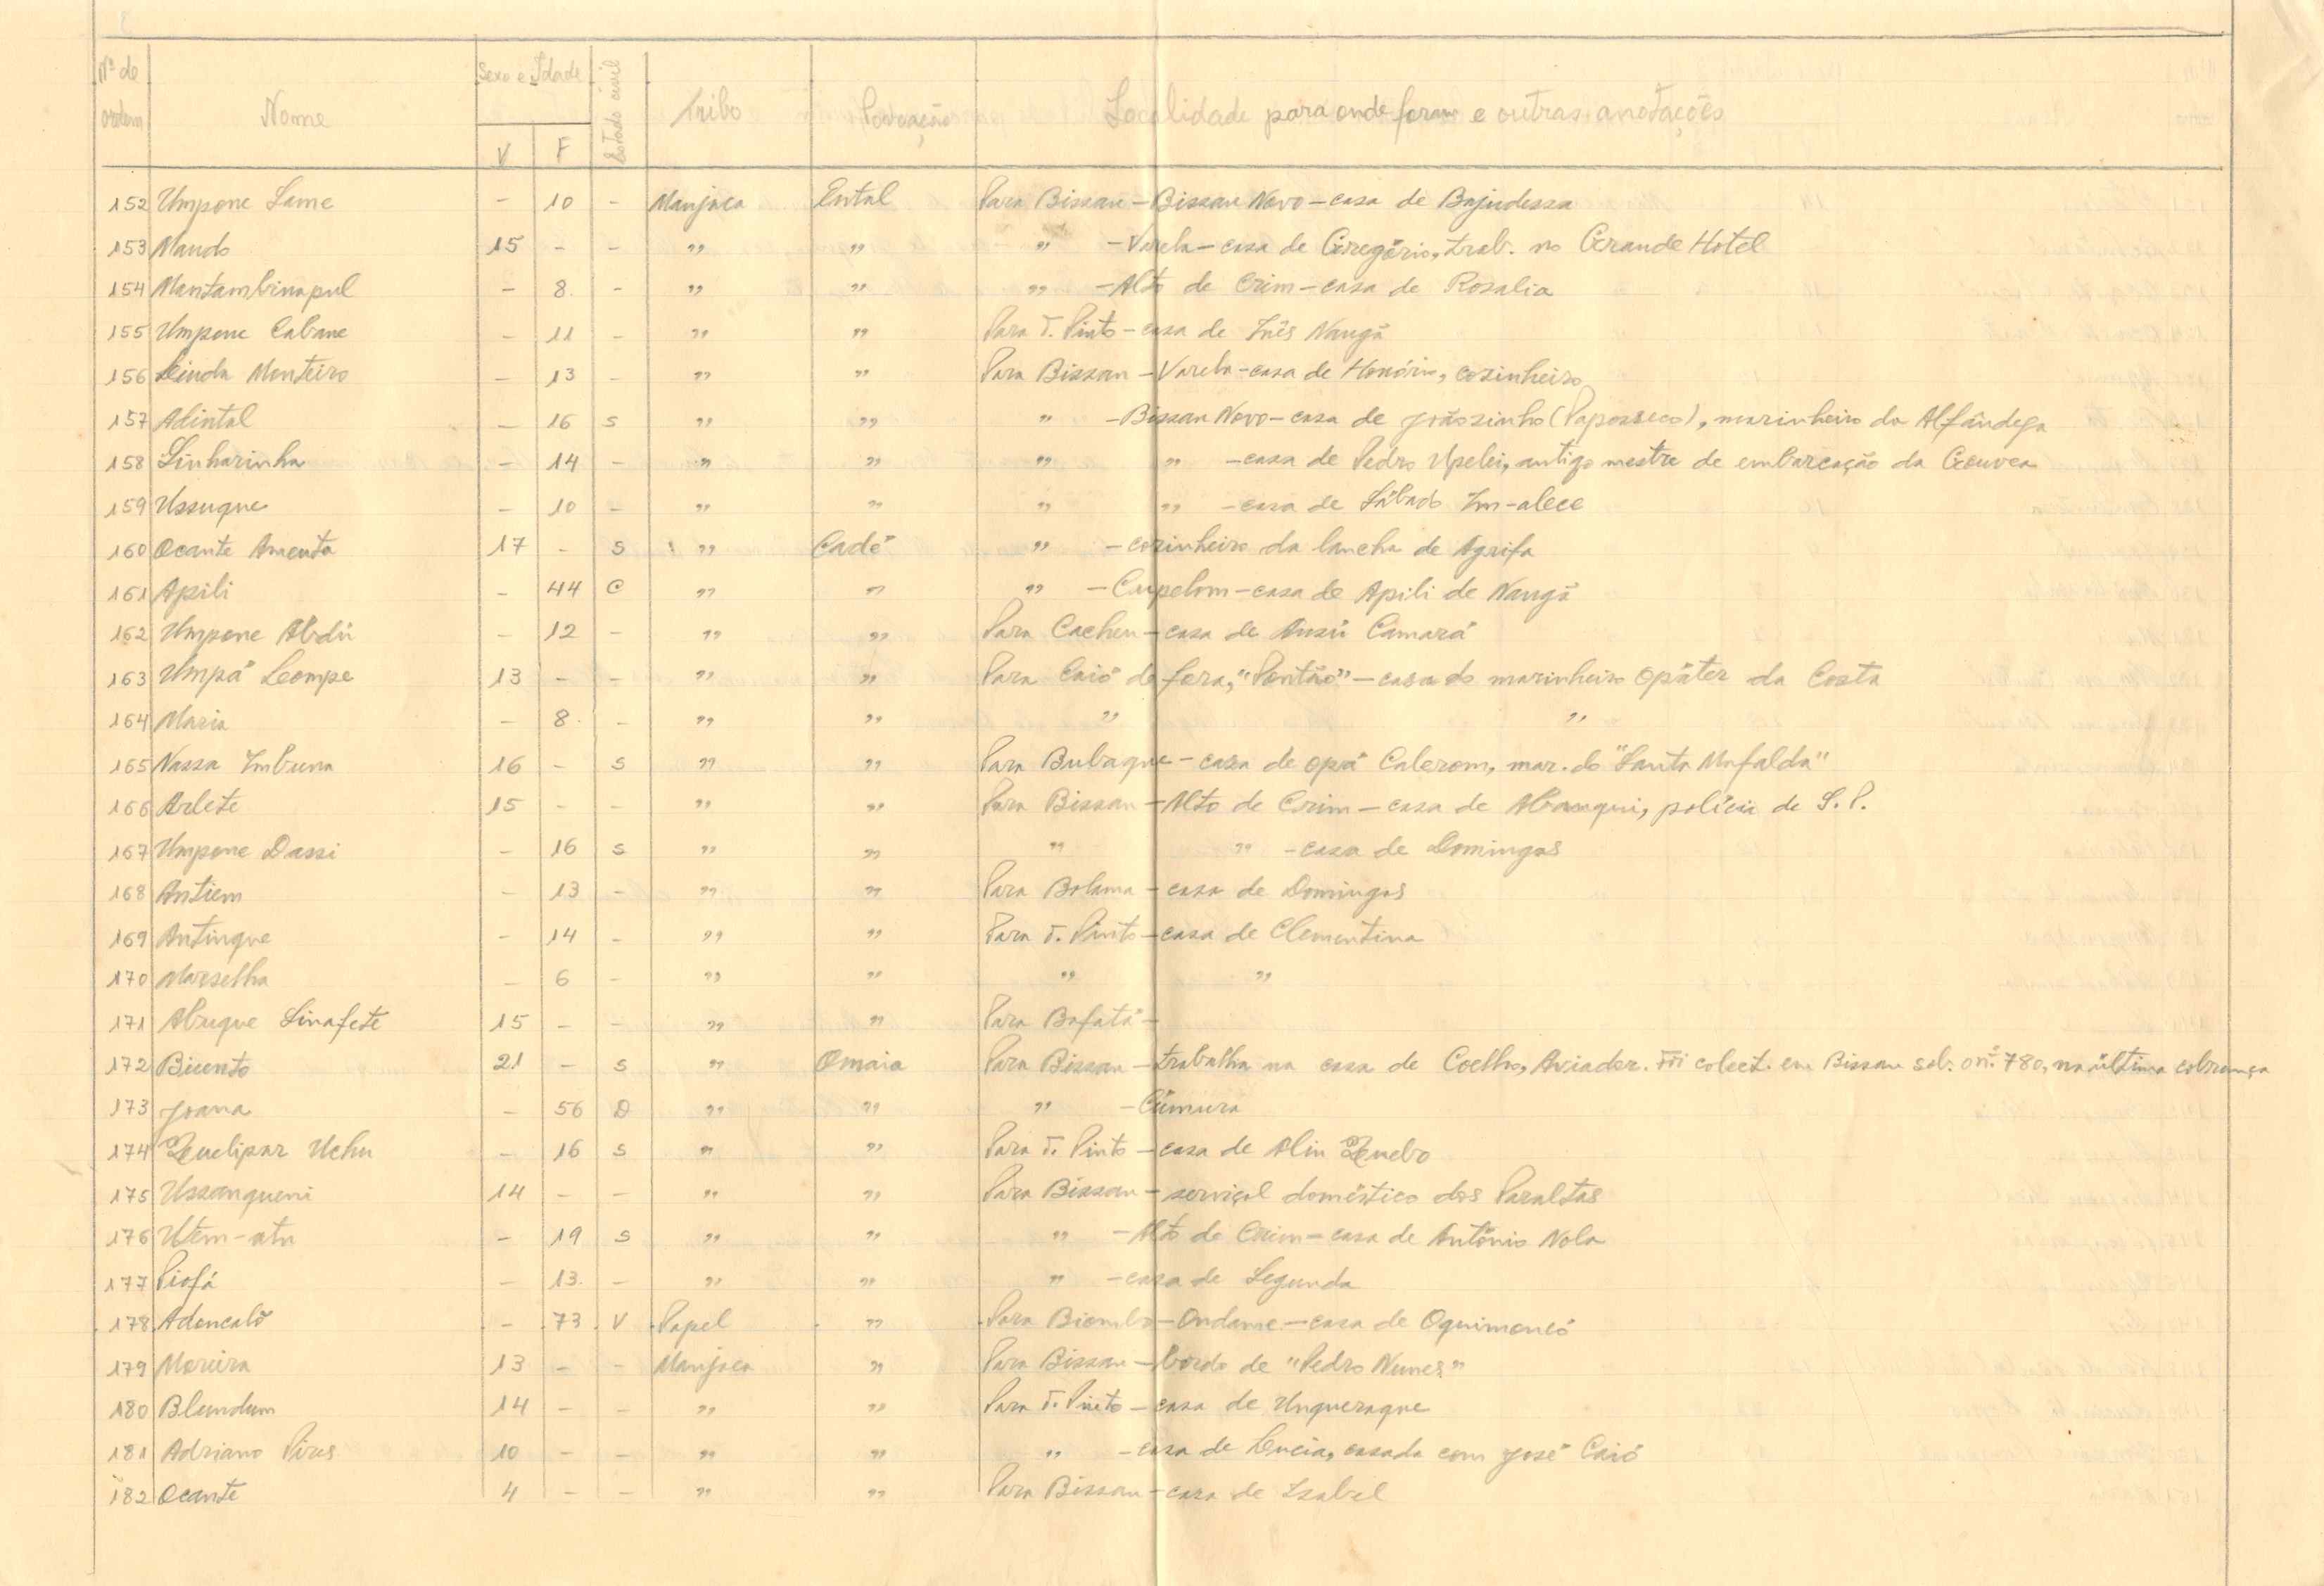 Nº de ordem Nome Sexo e Idade V F Estado civil Tribo Povoação Localidade para onde foram e outras anotações
152 Umpone Same - 10 - Manjaca Ental Para Bissau - Bissau Novo - casa de Bajudessa
153 Nando 15 - - " " " - Varela - casa de Gregório, trab. no Grande Hotel
154 Mantambinapul - 8 - " " " - Alto de Crim - casa de Rosalia
155 Umpone Cabane - 11 - " " Para T. Pinto - casa de Inês Naugã
156 Linda Monteiro - 13 - " " Para Bissau - Varela - casa de Honório, cozinheiro
157 Adintal - 16 S " " " - Bissau Novo - casa de Joãozinho (Paposseco), marinheiro da Alfândega
158 Sinharinha - 14 - " " " " - casa de Pedro Upelei, antigo mestre de embarcação da Gouvea
159 Ussuque - 10 - " " " " - casa de Sábado Im-alece
160 Ocante Amenta 17 - S " Cadé " - cozinheiro da lancha de Agrifa
161 Apili - 44 C " " " - Cupelom - casa de Apili de Naugã
162 Umpone Abdú - 12 - " " Para Cacheu - casa de Ansú Camará
163 Umpá Leompe 13 - - " " Para Caió de fora, "Pontão" - casa do marinheiro Opáter da Costa
164 Maria - 8 - " " " "
165 Nassa Imbuna 16 - S " " Para Bubaque - casa de Opá Calerom, mar. do "Santa Mafalda"
166 Arlete 15 - - " " Para Bissau - Alto de Crim - casa de Abanqui, polícia de S. P.
167 Umpone Dassi - 16 S " " " " - casa de Domingos
168 Antiem - 13 - " " Para Bolama - casa de Domingos
169 Antinque - 14 - " " Para T. Pinto - casa de Clementina
170 Marselha - 6 - " " " "
171 Abuque Sinafete 15 - - " " Para Bafatá -
172 Bicento 21 - S " Omaia Para Bissau - trabalha na casa de Coelho, Aviador. Foi colect. em Bissau sob. o nº. 780, na última cobrança
173 Joana - 56 D " " " - Cúmura
174 Quelipar Uchu - 16 S " " Para T. Pinto - casa de Alin Quebo
175 Ussanqueni 14 - - " " Para Bissau - serviçal doméstico dos Paraltas
176 Utem-atu - 19 S " " " - Alto de Crim - casa de António Nola
177 Piofá - 13 - " " " - casa de Segunda
178 Adoncaló - 73 V Papel " Para Biombo - Ondame - casa de Oquimoncó
179 Moreira 13 - - Manjaca " Para Bissau - bordo de "Pedro Nunes"
180 Blundum 14 - - " " Para T. Pinto - casa de Unqueraque
181 Adriano Pires 10 - - " " " - casa de Lucia, casada com José Caió
182 Ocante 4 - - " " Para Bissau - casa de Isabel